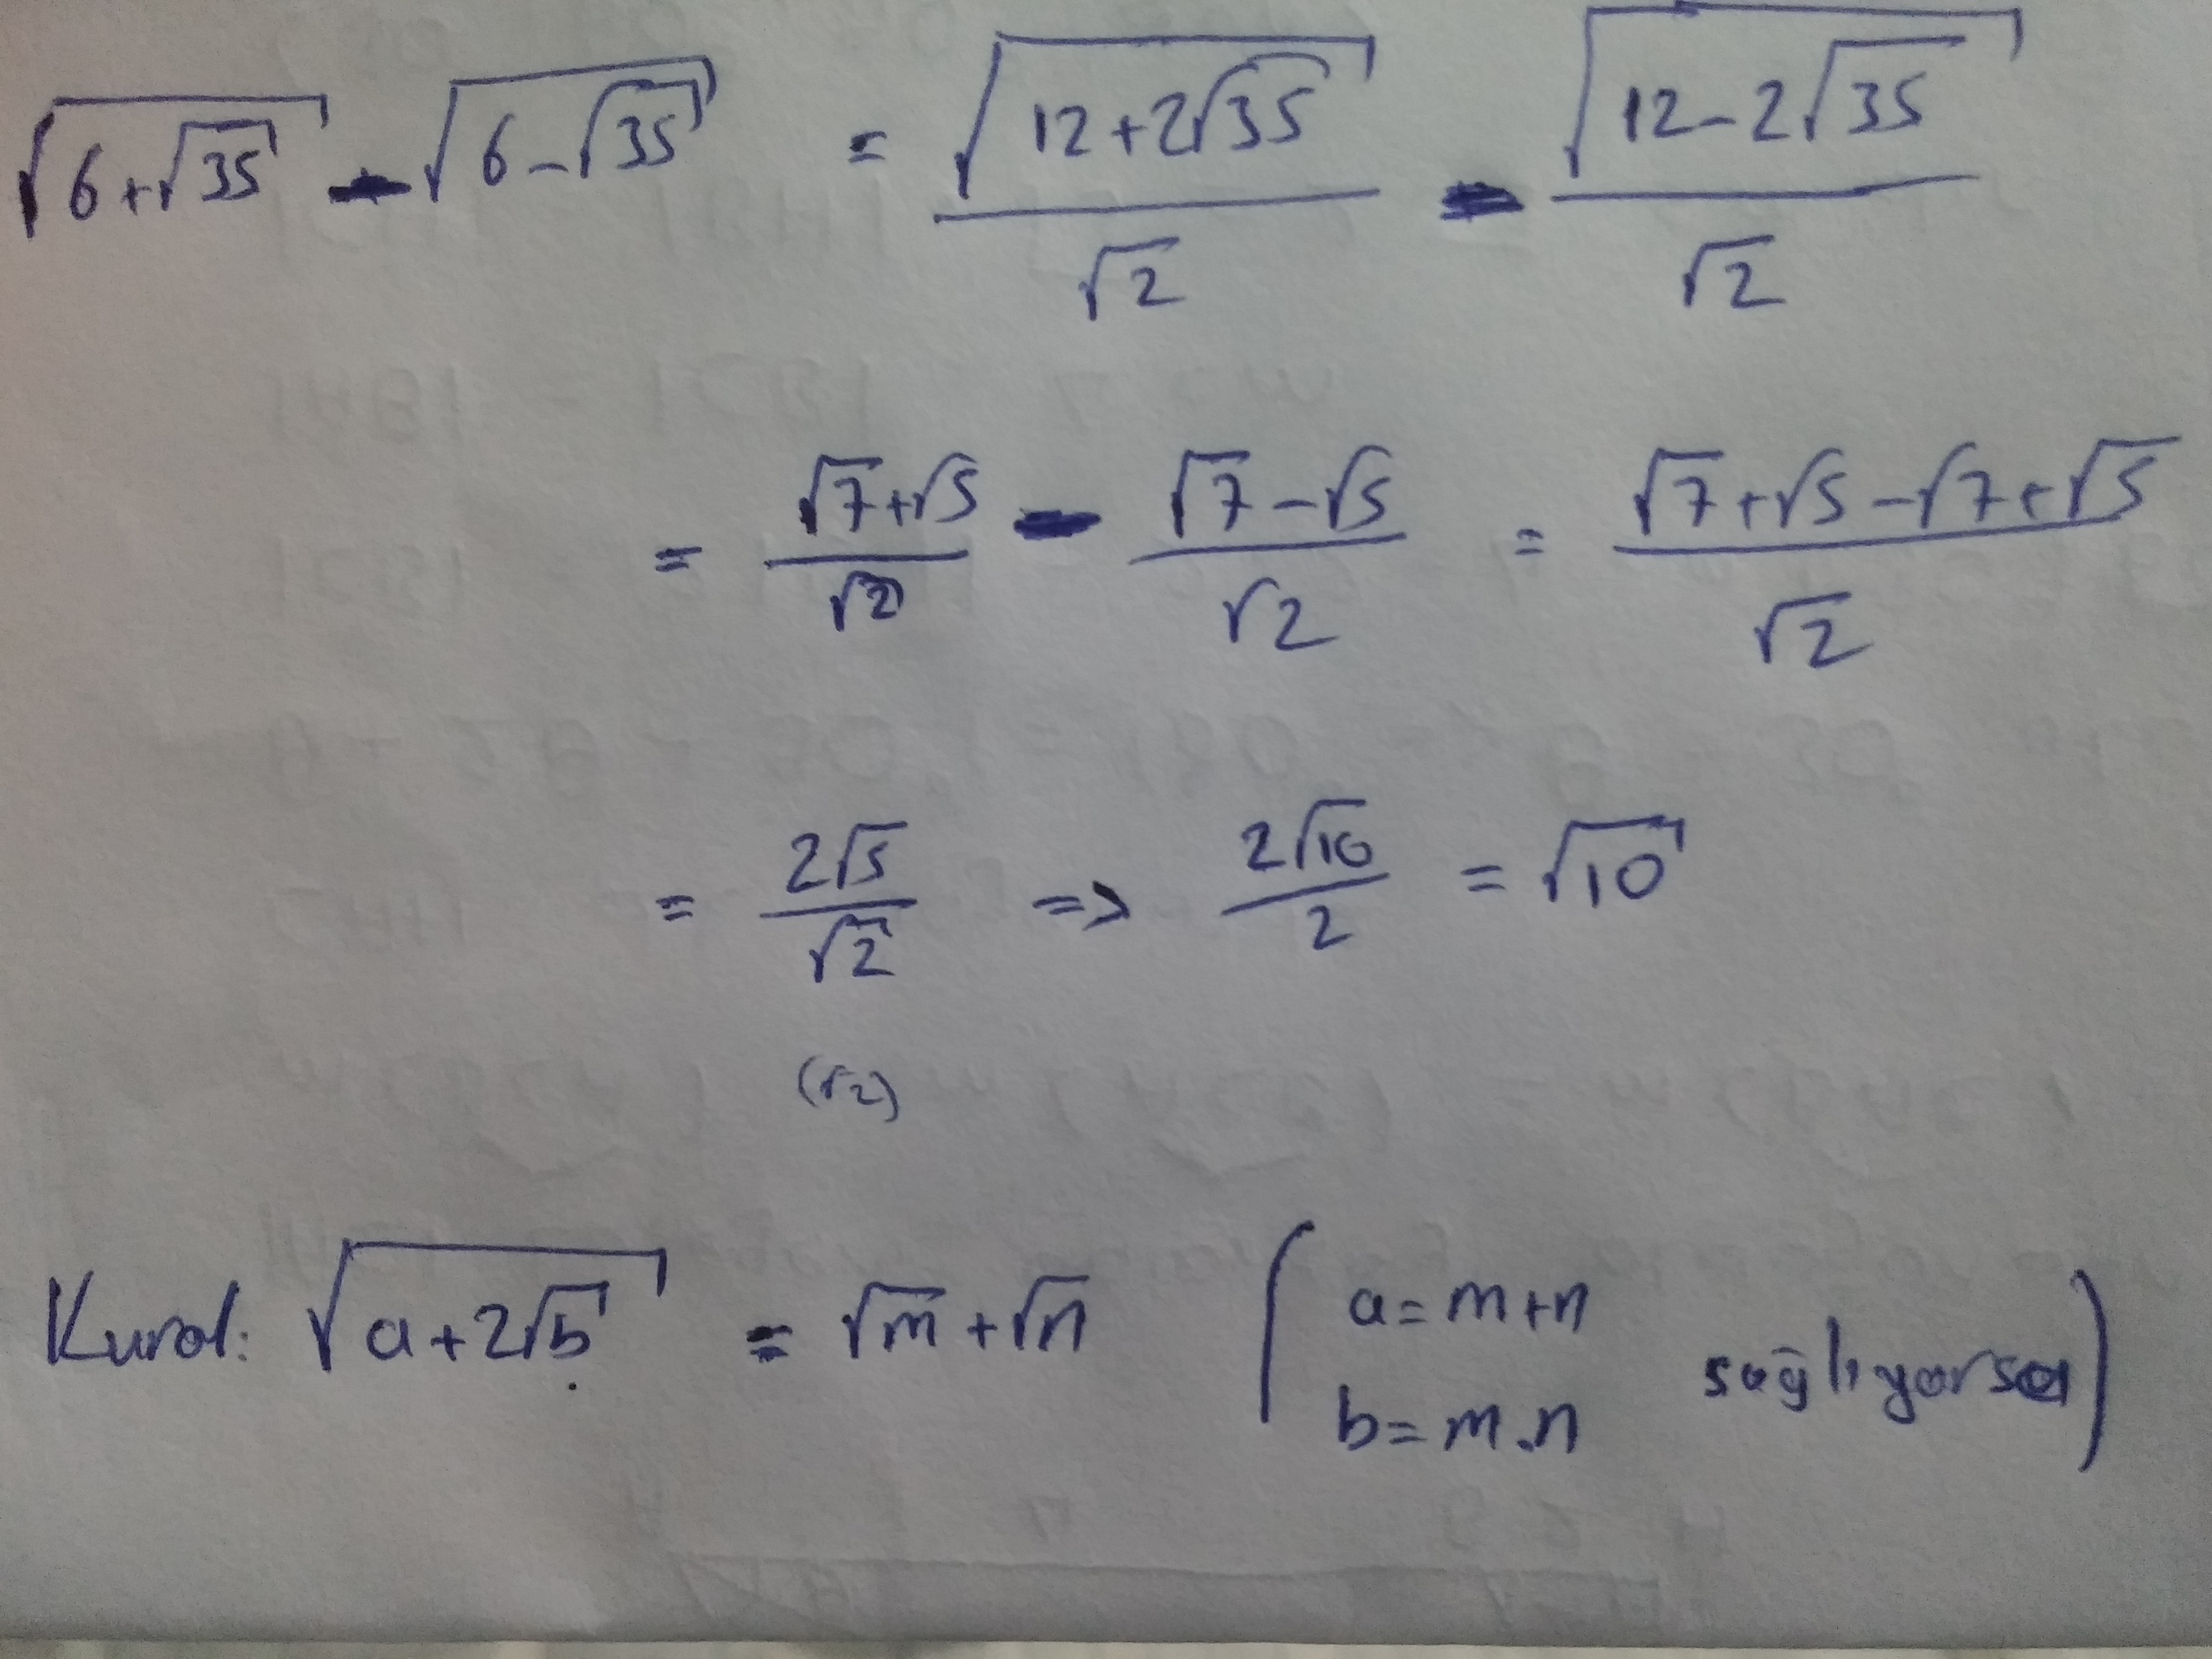 √(6+√35) - √(6-√35) = √(12+2√35)/√2 - √(12-2√35)/√2
= (√7+√5)/√2 - (√7-√5)/√2 = (√7+√5-√7+√5)/√2
= 2√5/√2 => 2√10/2 = √10
(√2)
Kural: √(a+2√b) = √m+√n (a=m+n
b=m.n sağlıyorsa)